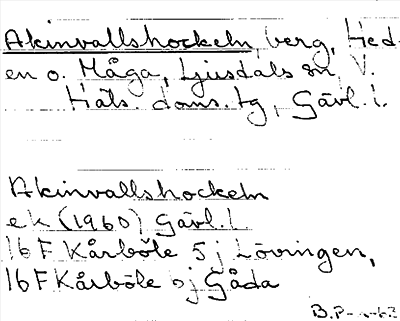 Akinvallshockeln, berg, Hed-
en o. Måga, Ljusdals sn, V.
Häls. doms. tg, Gävl. l.
Akinvallshockeln
ek (1960) Gävl. l
16 F Kårböle 5 j Lövingen,
16 F Kårböle j Gåda